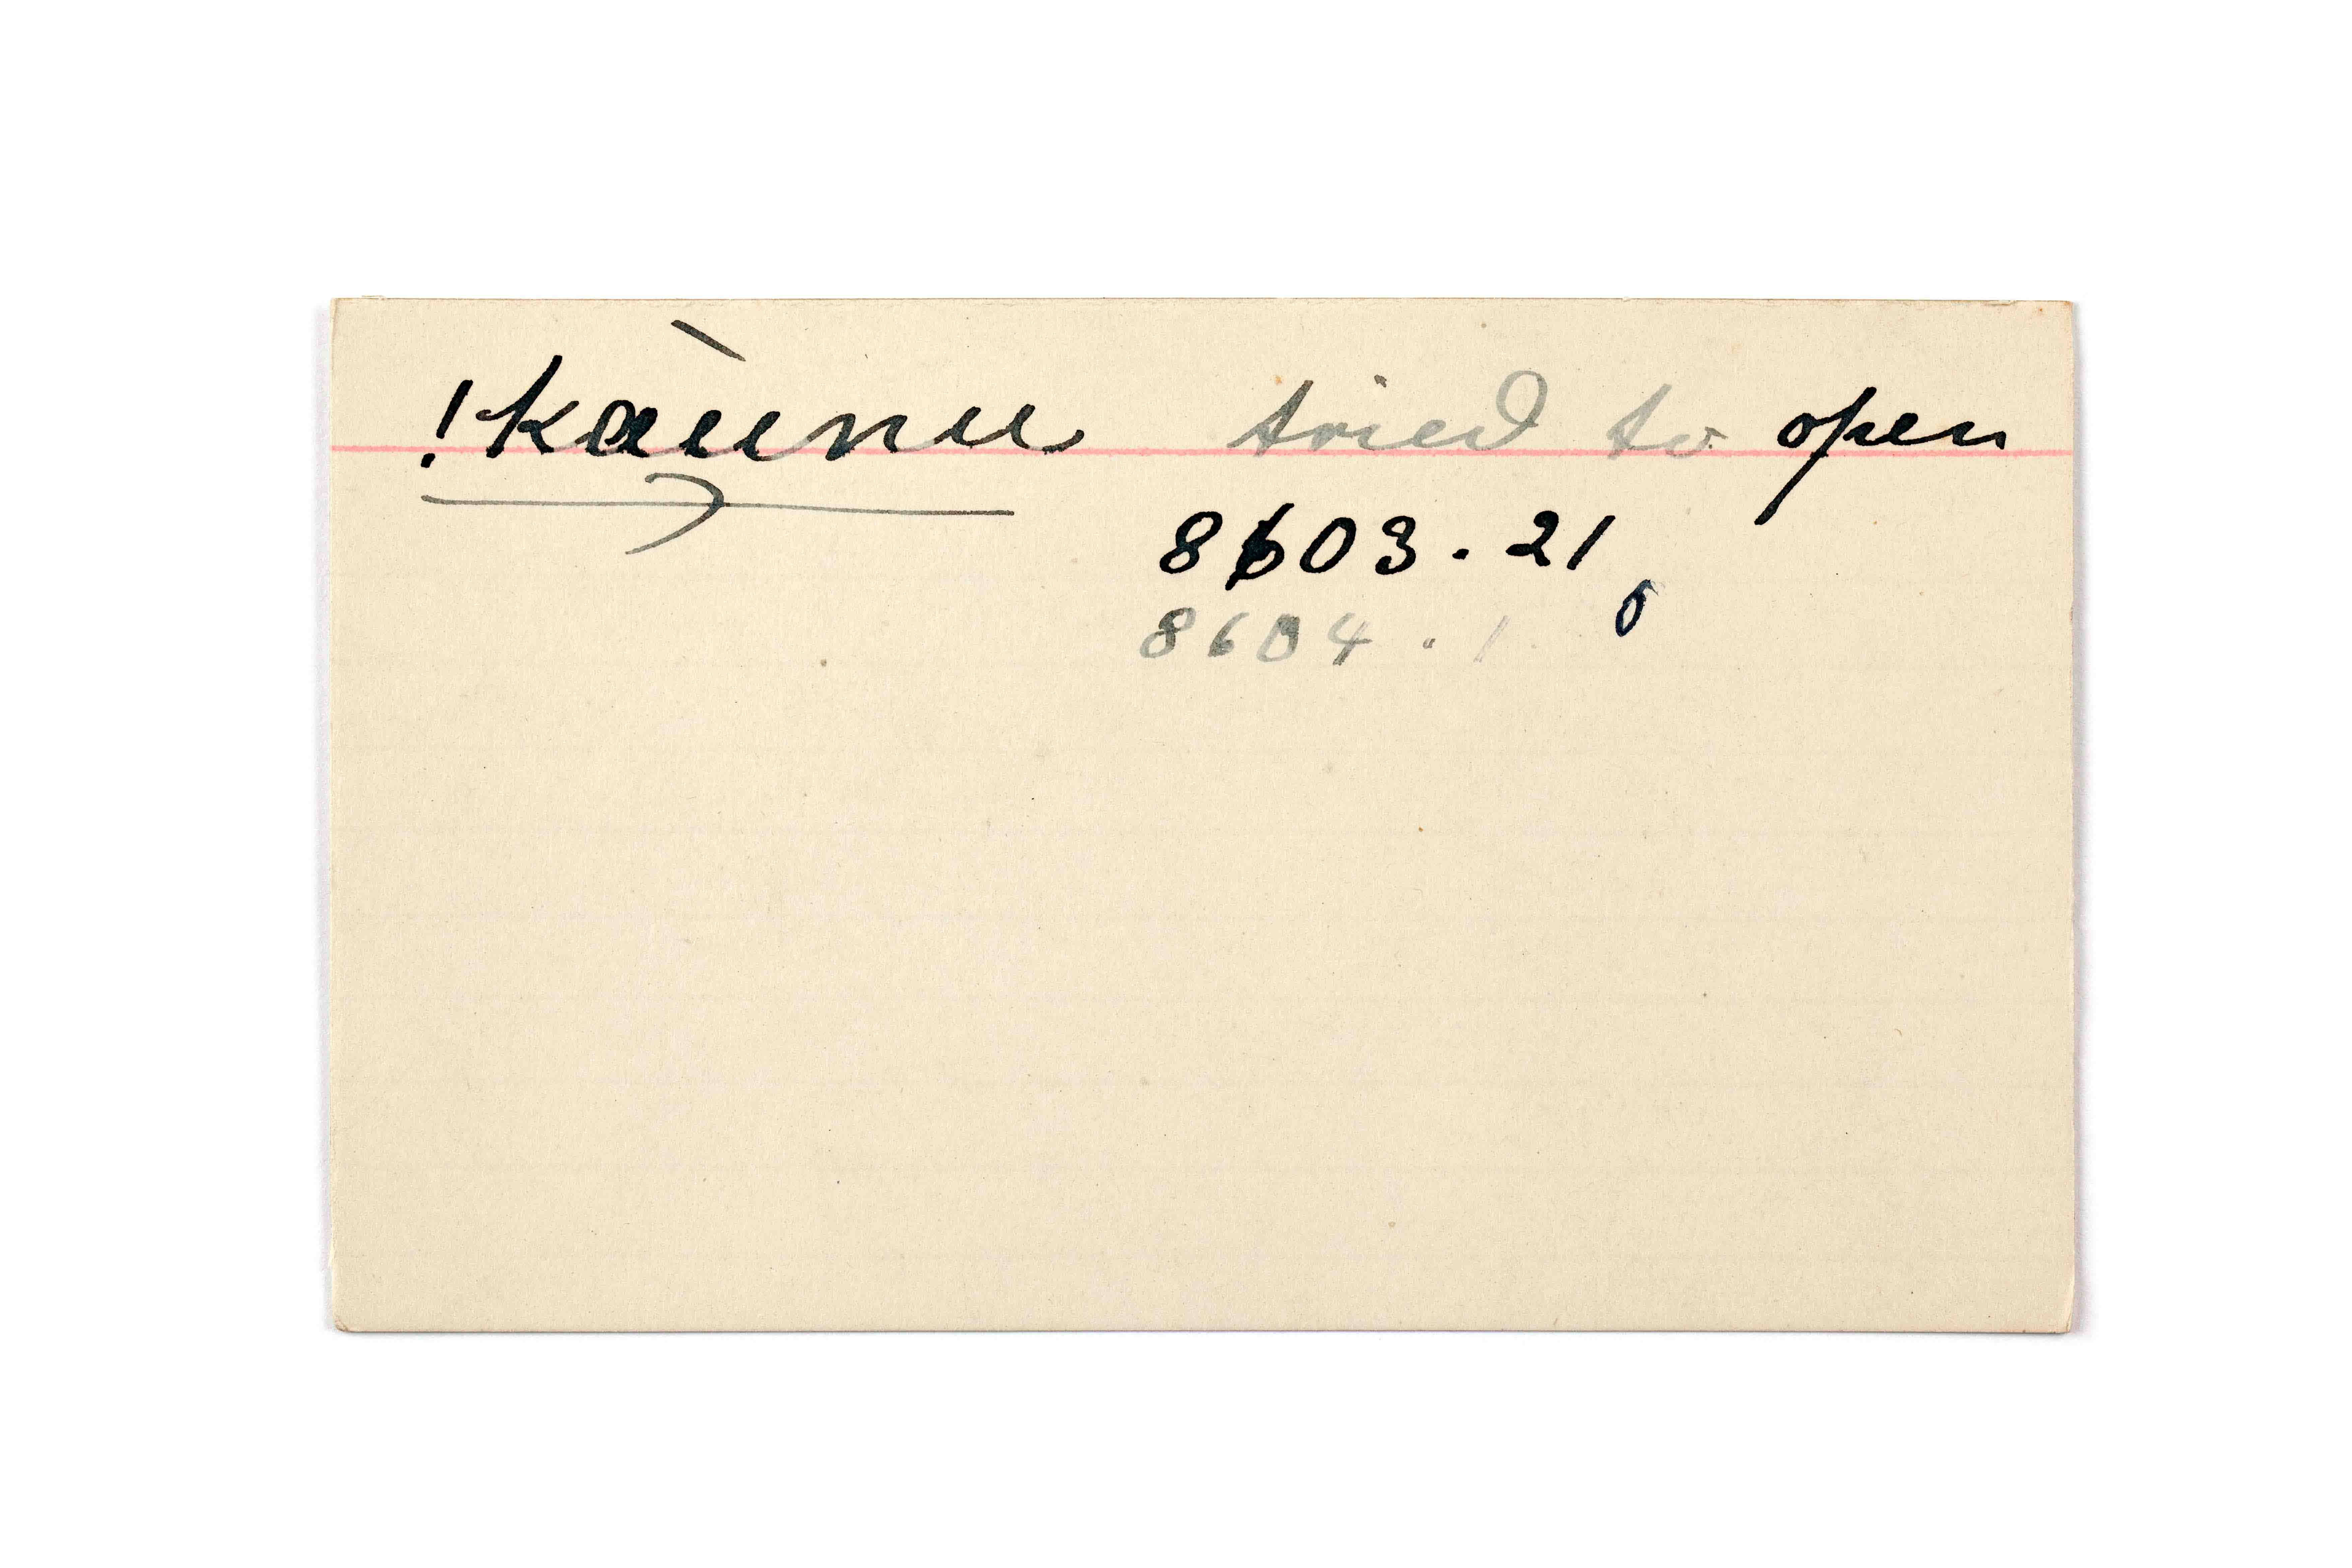 !kaùnu tried to open
8603.21
8604.1